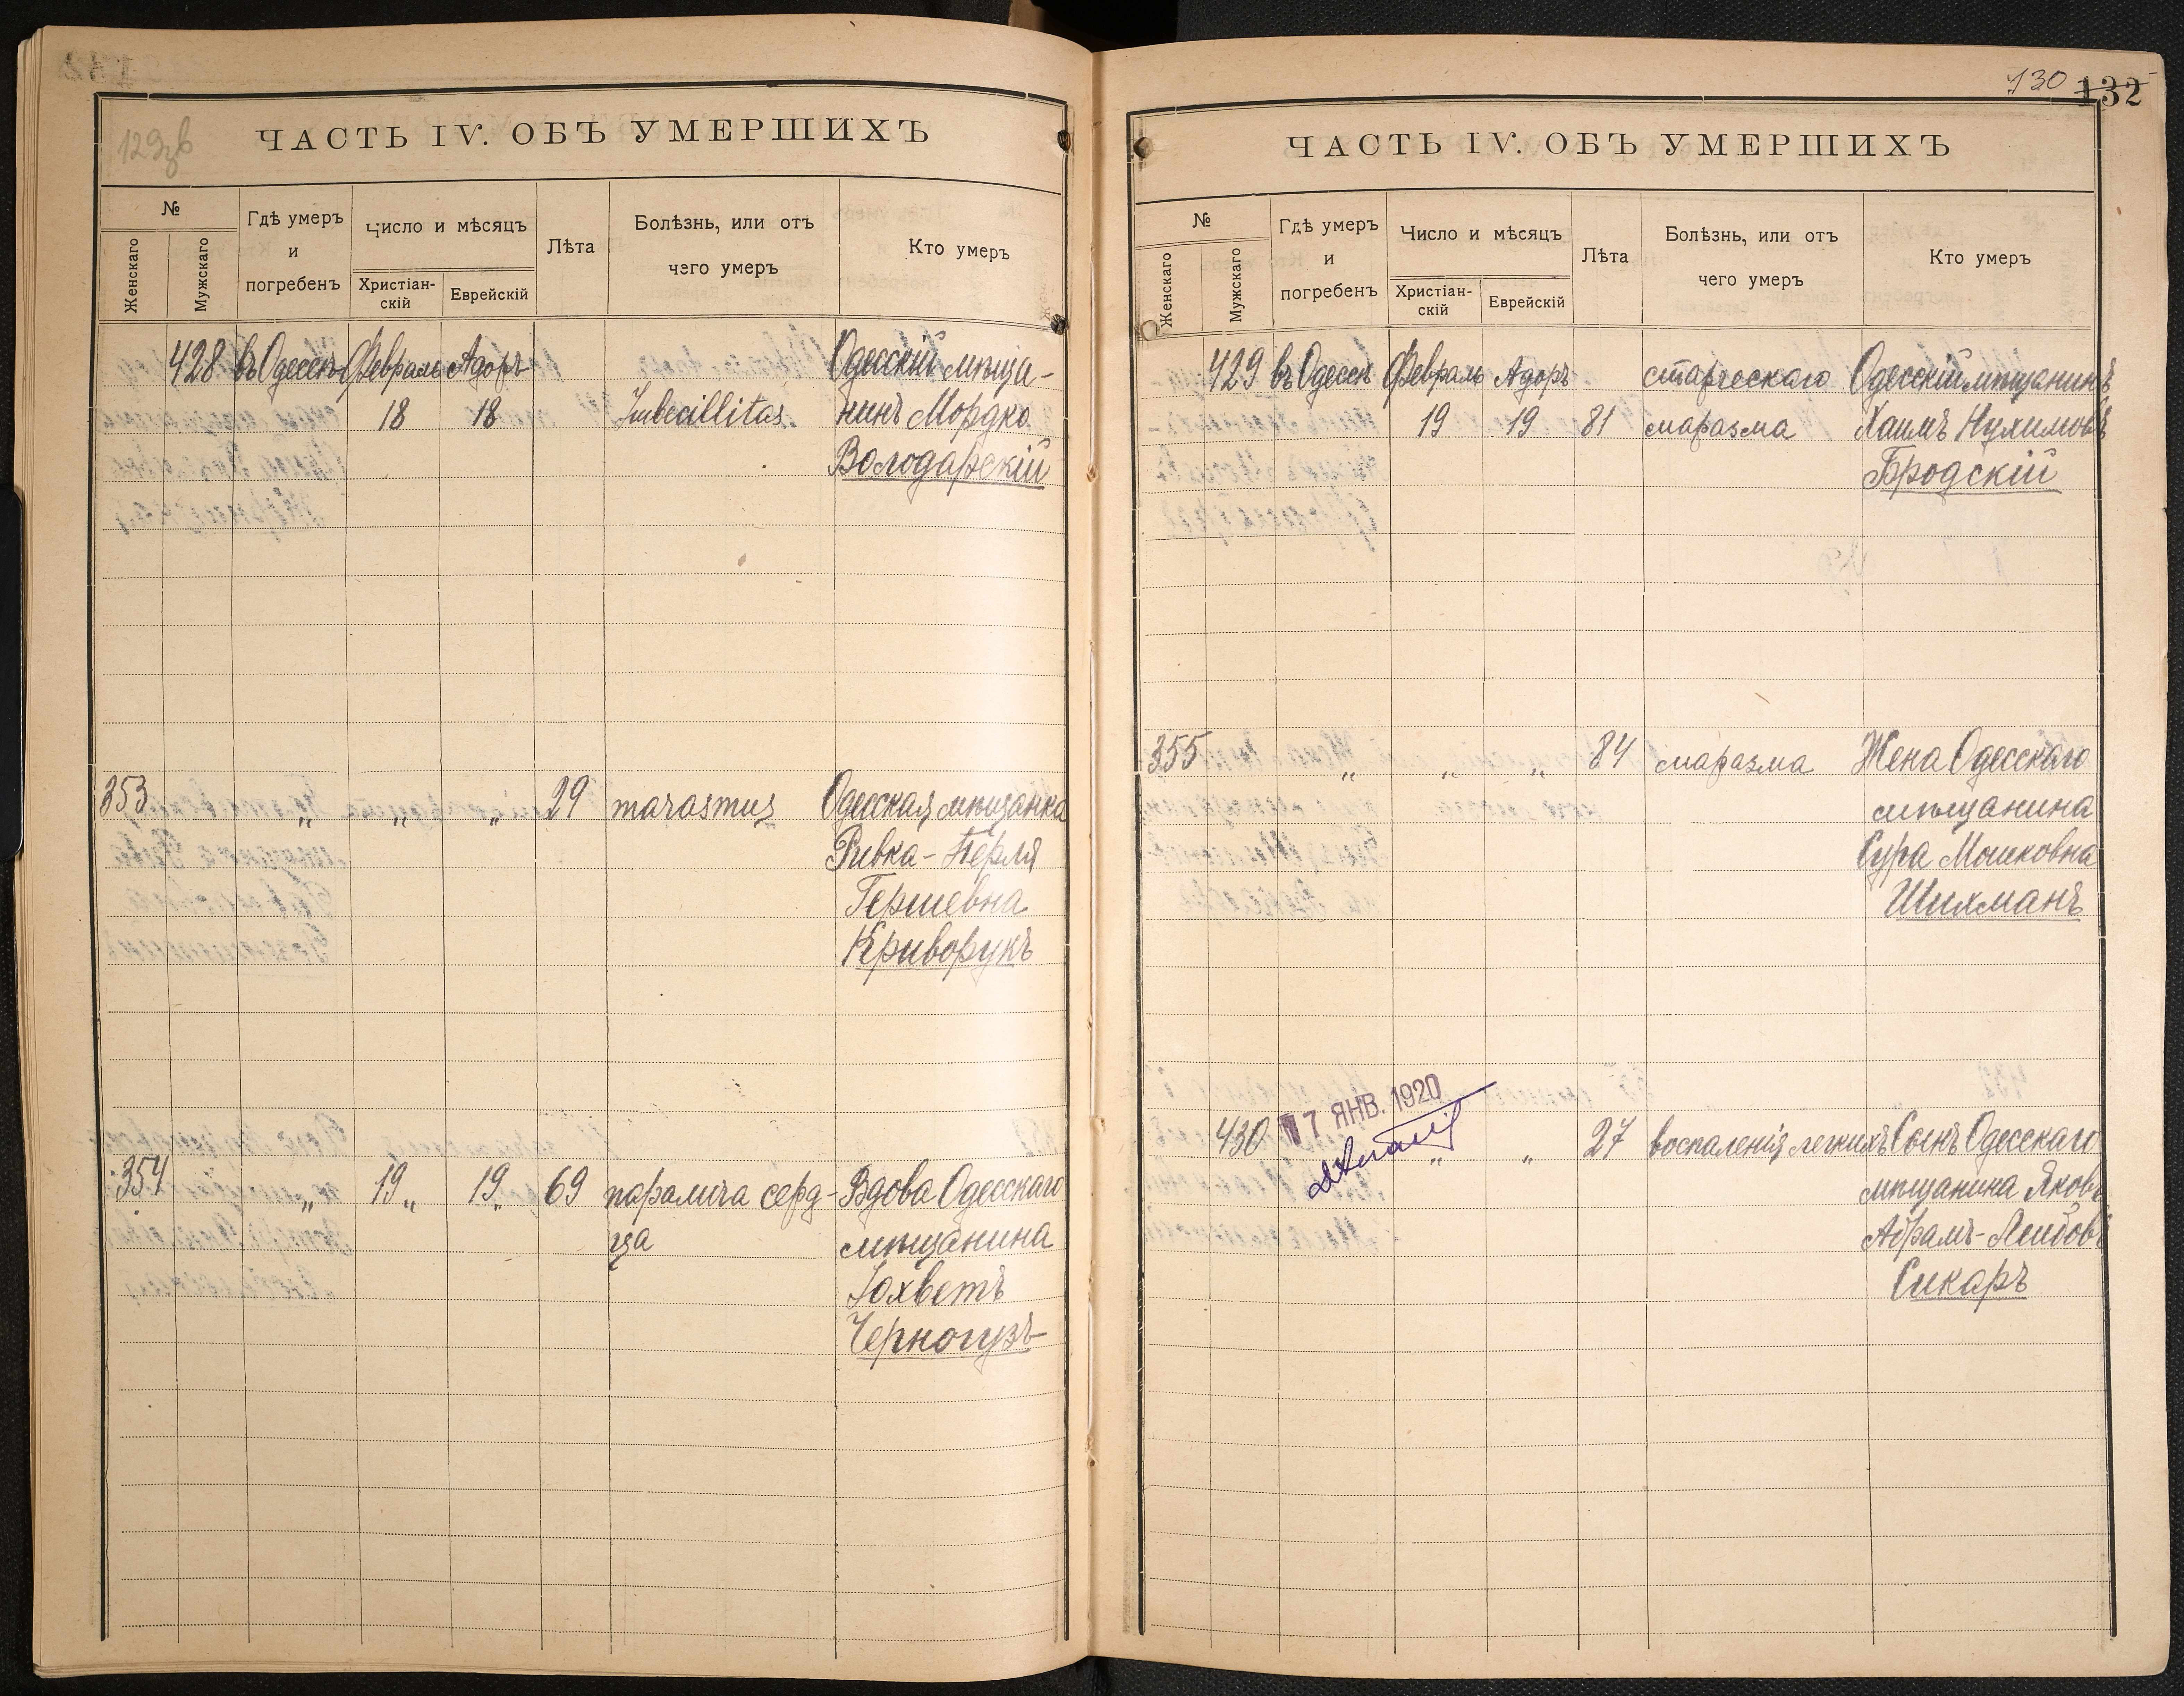 129зв
ЧАСТЬ IV. ОБЪ УМЕРШИХЪ
№
Женскаго
Мужскаго
Гдѣ умеръ
и
погребенъ
Число и мѣсяцъ
Христіан-
скій
Еврейскій
Лѣта
Болѣзнь, или отъ
чего умеръ
Кто умеръ
428 въ Одессѣ Февраль Адоръ Одесскій мѣща-
18 18 Imbecillitas нинъ Мордко
Володарскій
353 „ „ „ 29 marasmus Одесская мѣщанка
Ривка-Перля
Гершевна
Криворукъ
354 „ 19 „ 19 „ 69 паралича серд- Вдова Одесскаго
ца мѣщанина
Іохветъ
Черногузъ
130 132
ЧАСТЬ IV. ОБЪ УМЕРШИХЪ
№
Женскаго
Мужскаго
Гдѣ умеръ
и
погребенъ
Число и мѣсяцъ
Христіан-
скій
Еврейскій
Лѣта
Болѣзнь, или отъ
чего умеръ
Кто умеръ
429 въ Одессѣ Февраль Адоръ старческаго Одесскій мѣщанинъ
19 19 81 маразма Хаимъ Нухимовъ
Бродскій
355 „ „ „ 84 маразма Жена Одесскаго
мѣщанина
Сура Мошковна
Шихманъ
17 ЯНВ. 1920
430 „ „ 27 воспаленія легкихъ Сынъ Одесскаго
мѣщанина Яковъ
Абрамъ-Лейбовъ
Сикаръ